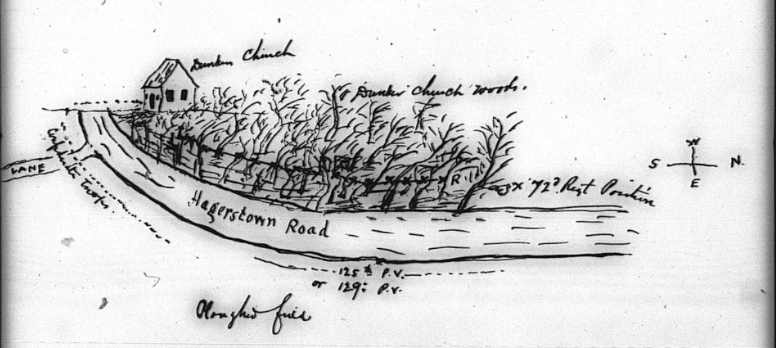 Dunker Church
Dunker church woods.
LANE
troops.
Hagerstown Road
Rill
x 72d Regt Position
W
S N.
E
125th P.V.
or 129th P.V.
Ploughed field